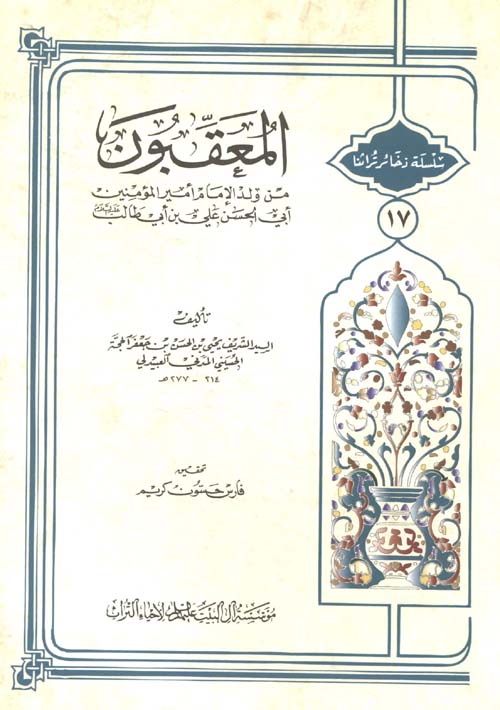 المُعَقِّبُونَ
من ولد الإمام أمير المؤمنين
أبي الحسن علي بن أبي طالب
سلسلة ذخائر تراثنا
١٧
تأليف
السيد الشريف يحيى بن الحسن بن جعفر الحجة
الحسيني المدني العبيدلي
٢١٤ - ٢٧٧ هـ
تحقيق
فارس حسون كريم
مؤسسة آل البيت عليهم السلام لإحياء التراث